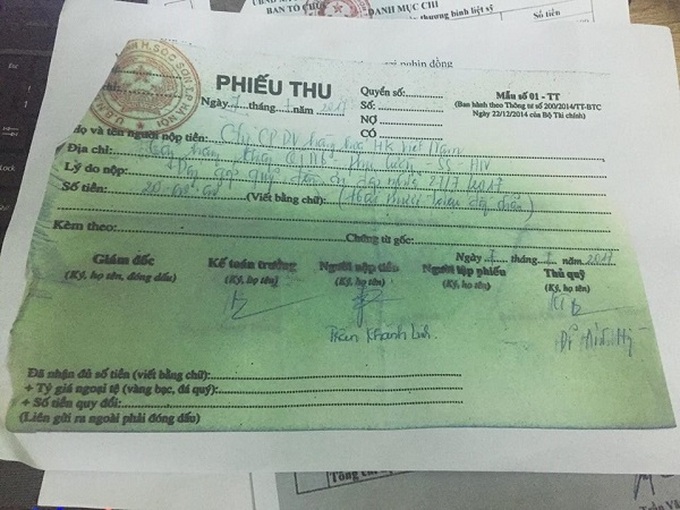 BAN TỔ CHỨC
DANH MỤC CHI
thương binh liệt sỹ
Số tiền
nghìn đồng
H. SÓC SƠN T.P HÀ NỘI
PHIẾU THU
Ngày 7 tháng 7 năm 2017
Quyển số:
Số:
NỢ
CÓ
Mẫu số 01 - TT
(Ban hành theo Thông tư số 200/2014/TT-BTC
Ngày 22/12/2014 của Bộ Tài chính)
Họ và tên người nộp tiền: CP DV hàng hóa HK Việt Nam
Địa chỉ: - SS - HN
Lý do nộp: quỹ đền ơn đáp nghĩa 27/7/2017
Số tiền: 20.000.000 (Viết bằng chữ): (Hai mươi triệu đồng chẵn)
Kèm theo: Chứng từ gốc:
Ngày 7 tháng 7 năm 2017
Giám đốc Kế toán trưởng Người nộp tiền Người lập phiếu Thủ quỹ
(Ký, họ tên, đóng dấu) (Ký, họ tên) (Ký, họ tên) (Ký, họ tên) (Ký, họ tên)
Trần Khánh Linh
Đã nhận đủ số tiền (viết bằng chữ):
+ Tỷ giá ngoại tệ (vàng bạc, đá quý):
+ Số tiền quy đổi:
(Liên gửi ra ngoài phải đóng dấu)